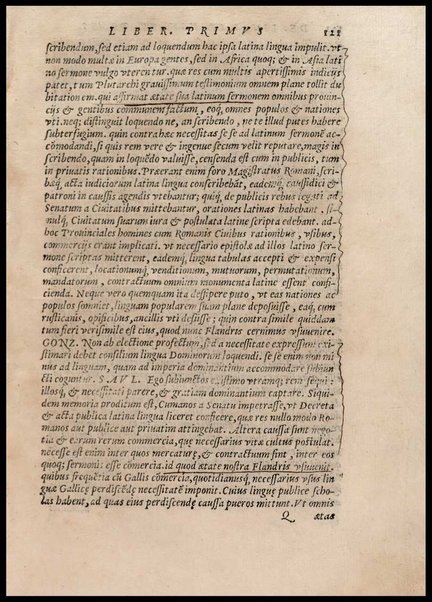 LIBER. PRIMVS 121
scribendum, sed etiam ad loquendum hac ipsa latina lingua impulit. vt
non modo multæ in Europa gentes, sed in Africa quoq; & in Asia lati
no sermone vulgo vterentur. quæ res cum multis apertissimis indicijs
patet, tum Plutarchi grauissimum testimonium omnem plane tollit du
bitationem. qui affirmat ætate sua latinum sermonem omnibus prouin
cijs & gentibus communem factum, eoq, omnes populos & nationes
vti. neq; distinguit loquendo ne, an scribendo, ne te illud putes habere
subterfugium. quin contra hæc necessitas se se ad latinum sermonē ac-
cōmodandi, si quis rem vere & ingenue secum velit reputare, magis in
scribendo, quam in loquēdo valuisse, censenda est cum in publicis, tum
in priuatis rationibus. Præerant enim foro Magistratus Romani, scri-
bæq, acta iudiciorum latina lingua conscribebāt, eademq, caussidici &
patroni in caussis agendis vtebantur; quiq, de publicis rebus legati ad
Senatum a Ciuitatibus mittebantur, orationes latinas habebant. si-
mulq, Ciuitatum suarum iura & postulata latine scripta edebant. ad-
hoc Prouinciales homines cum Romanis Ciuibus rationibus, vsibus,
commercijs erant implicati. vt necessario epistolæ ad illos latino ser-
mone scriptas mitterent, eademq, lingua tabulas accepti & expensi
conficerent, locationumq, venditionum, mutuorum, permutationum,
mandatorum, contractuum omnium monumenta latine essent confi-
cienda. Neque vero quemquam ita desipere puto, vt eas nationes ac
populos somniet, linguam popularem suam plane deposuisse, eaq, cum
rusticanis, opificibus, ancillis vti desiisse; quin contra simile quiddam
tum fieri verisimile est eius, quod nunc Flandris cernimus vsuuenire.
GONZ. Non ab electione profectum, sed a necessitate expressum exi
stimari debet consilium lingua Dominorum loquendi. se se enim non mi
nus ad linguam, quam ad imperia dominantium accommodare subiun
cti coguntur. SAVL. Ego subiunctos existimo vtramq; rem sequi:
illosq, & necessitati parere, & gratiam dominantium captare. Siqui-
dem memoria proditum est, Cumanos a Senatu impetrasse, vt Decreta
& acta publica latina lingua liceret conficere, quæ res nullo modo Ro-
manos aut publice aut priuatim attingebat. Altera caussa sunt nego-
tia & earum rerum commercia, quæ necessarius vitæ cultus postulat.
necesse est enim inter quos mercaturę, & contractuum sint, inter eos
quoq; sermonis esse cōmercia. id quod ætate nostra Flandris vsuuenit.
quibus frequētia cū Gallis cōmercia, quotidianusq, necessarius vsus lin
guæ Gallicę perdiscēdę necessitatē imponit. Cuius linguę publice scho-
las habent, ad quas eius perdiscendę caussa pueros mittunt. Vt omnis
Q ætas